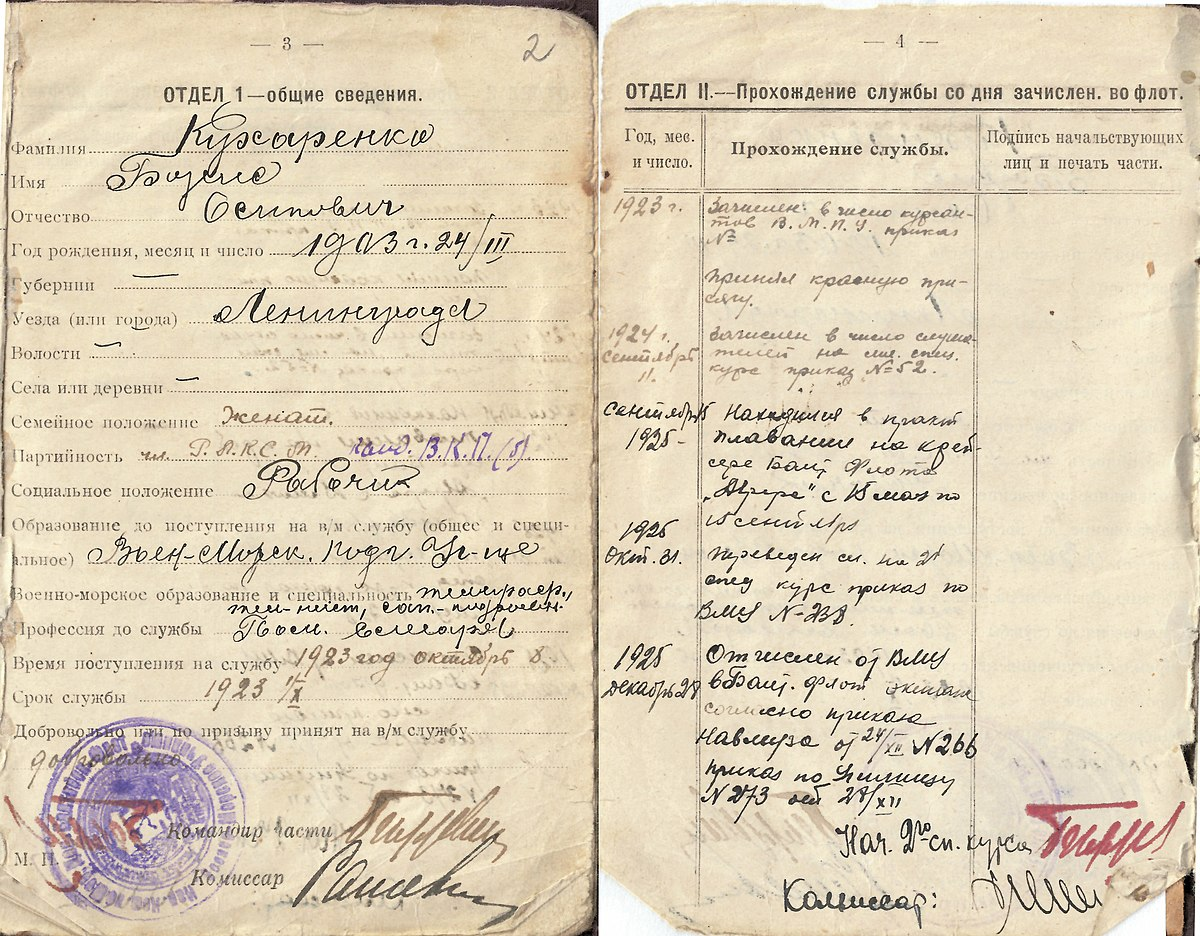 — 3 —
2
ОТДЕЛ 1—общие сведения.
Фамилия Кухаренко
Имя Борис
Отчество Осипович
Год рождения, месяц и число 1903 г. 24/III
Губернии —
Уезда (или города) Ленинграда
Волости —
Села или деревни —
Семейное положение Женат.
Партийность чл. Р.Л.К.С.М. канд. В.К.П.(б)
Социальное положение Рабочий
Образование до поступления на в/м службу (общее и специ-
альное) Воен-Морск. Подг. Уч-ще
Военно-морское образование и специальность
Профессия до службы
Время поступления на службу 1923 год октябрь
Срок службы 1923 1/X
Добровольно или по призыву принят на в/м службу
добровольно
Командир части
М. П.
Комиссар
— 4 —
ОТДЕЛ II.—Прохождение службы со дня зачислен. во флот.
Год, мес. и число.
Прохождение службы.
Подпись начальствующих лиц и печать части.
1923 г. Зачислен в число курсан-
тов В. М. П. У. приказ
№
принял красную при-
сягу.
1924 г. Зачислен в число слуша-
сентябрь телей на мл. спец.
11. курс приказ №52.
сентябрь 15 Находился в практ
1925 - плавании на крей-
сере Балт. Флота
„Аврора" с 15 мая по
15 сентября
1925
Окт. 31. переведен на 2й
спец курс приказ по
ВМУ N-238.
1925 Отчислен от ВМУ
декабрь 28 в Балт. флот
согласно приказа
от 24/XII N266
приказ по Училищу
N273 от 28/XII
Нач. 2го сп. курса
Комиссар: